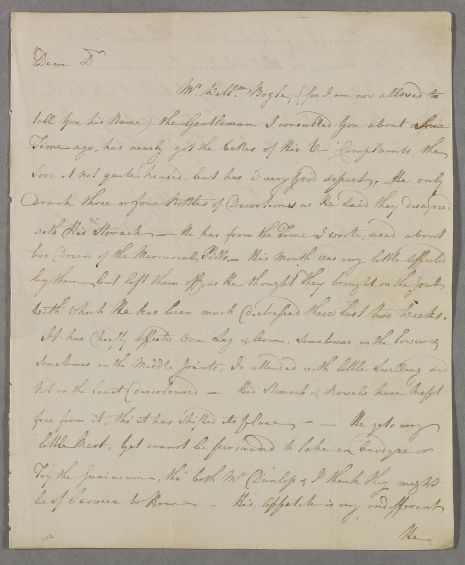 Dear Dr
Mr Willm. Bogle, (for I am now allowed to
tell you his Name) the Gentleman I consulted you about some
Time ago, has nearly got the better of his V. Complaints the
Sore is not quite heal'd but has a very good aspect, - He only
Drank three or four Bottles of Decoctions as He said they disagreed
with His Stomach - He has from the Time I wrote, used about
two Dozen of the Mercurial Pills, - His Mouth was very little affected
by them - but left them off, as he thought they brought on the Gout,
with which He has been much distressed these last two Weeks.
It has chiefly affected One Leg & Arm. Sometimes in the lower &
sometimes in the Middle Joints, Is attended with little Swelling and
Not in the least Discoloured - His Stomach & Bowels have kept
free from it, tho' it has shifted its place - - He gets very
little Rest. Yet cannot be persuaded to take an Anodyne or
Try the Guaiacum, tho' both Mr Dunlop & I think they might
be of Service to Him - His Appetite is very indifferent
He